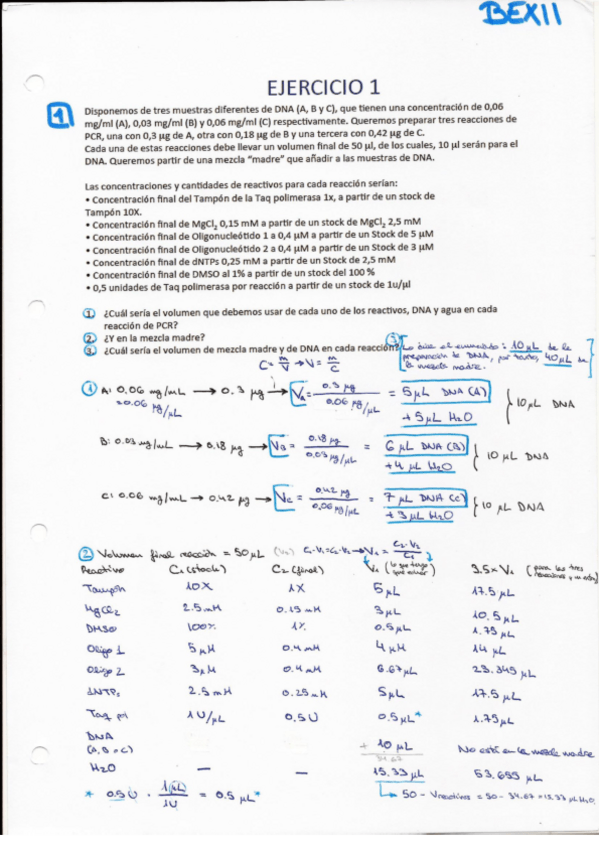 BEX11
EJERCICIO 1
1 Disponemos de tres muestras diferentes de DNA (A, B y C), que tienen una concentración de 0,06
mg/ml (A), 0,03 mg/ml (B) y 0,06 mg/ml (C) respectivamente. Queremos preparar tres reacciones de
PCR, una con 0,3 µg de A, otra con 0,18 µg de B y una tercera con 0,42 µg de C.
Cada una de estas reacciones debe llevar un volumen final de 50 µl, de los cuales, 10 µl serán para el
DNA. Queremos partir de una mezcla "madre" que añadir a las muestras de DNA.
Las concentraciones y cantidades de reactivos para cada reacción serían:
• Concentración final del Tampón de la Taq polimerasa 1x, a partir de un stock de
Tampón 10X.
• Concentración final de MgCl2 0,15 mM a partir de un stock MgCl2 2,5 mM
• Concentración final de Oligonucleótido 1 a 0,4 µM a partir de un Stock de 5 µM
• Concentración final de Oligonucleótido 2 a 0,4 µM a partir de un Stock de 3 µM
• Concentración final de dNTPs 0,25 mM a partir de un Stock de 2,5 mM
• Concentración final de DMSO al 1% a partir de un stock del 100 %
• 0,5 unidades de Taq polimerasa por reacción a partir de un stock de 1u/µl
1. ¿Cuál sería el volumen que debemos usar de cada uno de los reactivos, DNA y agua en cada
reacción de PCR?
2. ¿Y en la mezcla madre?
3. ¿Cuál sería el volumen de mezcla madre y de DNA en cada reacción?
3 Lo dice el enunciado: 10 µL de la
preparación de DNA, por tanto, 40 µL de
la mezcla madre.
C = m/V → V = m/C
1 A: 0.06 mg/mL → 0.3 µg → VA = 0.3 µg / 0.06 µg/µL = 5 µL DNA (A) + 5 µL H2O } 10 µL DNA
= 0.06 µg/µL
B: 0.03 mg/mL → 0.18 µg → VB = 0.18 µg / 0.03 µg/µL = 6 µL DNA (B) + 4 µL H2O } 10 µL DNA
C: 0.06 mg/mL → 0.42 µg → VC = 0.42 µg / 0.06 µg/µL = 7 µL DNA (C) + 3 µL H2O } 10 µL DNA
2 Volumen final reacción = 50 µL (V2) C1·V1 = C2·V2 → V1 = C2·V2 / C1
Reactivo C1 (stock) C2 (final) V1 (lo que tengo que echar) 3.5 x V1 (para las tres reacciones
Tampón 10X 1X 5 µL 17.5 µL
MgCl2 2.5 mM 0.15 mM 3 µL 10.5 µL
DMSO 100% 1% 0.5 µL 1.75 µL
Oligo 1 5 µM 0.4 mM 4 µM 14 µL
Oligo 2 3 µM 0.4 mM 6.67 µL 23.345 µL
dNTPs 2.5 mM 0.25 mM 5 µL 17.5 µL
Taq pol 1 U/µL 0.5 U 0.5 µL* 1.75 µL
DNA
(A, B o C) + 10 µL No está en la mezcla madre
34.67
H2O — — 15.33 µL 53.655 µL
* 0.5 U · 1 µL / 1 U = 0.5 µL*
50 - V reactivos = 50 - 34.67 = 15.33 µL H2O.